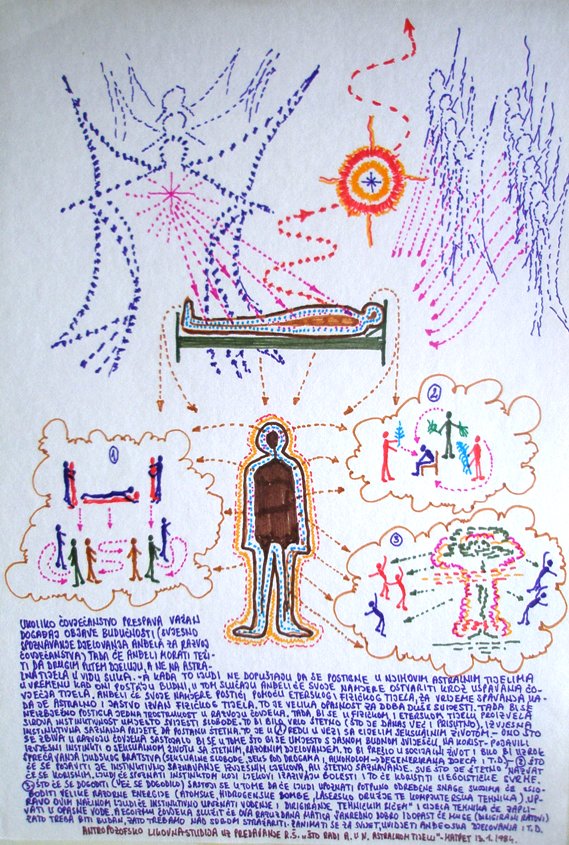 1
2
3
UKOLIKO ČOVJEČANSTVO PRESPAVA VAŽAN
DOGAĐAJ OBJAVE BUDUĆNOSTI (SVJESNO
SPOZNAVANJE DJELOVANJA ANĐELA ZA RAZVOJ
ČOVJEČANSTVA) TADA ĆE ANĐELI MORATI TEŽI-
TI DA DRUGIM PUTEM DJELUJU, A NE NA ASTRA-
LNA TIJELA U VIDU SLIKA. - A KADA TO LJUDI NE DOPUŠTAJU DA SE POSTIGNE U NJIHOVIM ASTRALNIM TIJELIMA
U VREMENU KAD ONI POSTAJU BUDNI, U TOM SLUČAJU ANĐELI ĆE SVOJE NAMJERE OSTVARITI KROZ USPAVANA ČO-
VJEČJA TIJELA. ANĐELI ĆE SVOJE NAMJERE POSTIĆI POMOĆU ETERSKOG I FIZIČKOG TIJELA, ZA VRIJEME SPAVANJA KA-
DA JE ASTRALNO I JASTVO IZVAN FIZIČKOG TIJELA, TO JE VELIKA OPASNOST ZA DOBA DUŠE SVIJESTI. TADA BI SE
NEIZBJEŽNO POSTIGLA JEDNA ŠTETNOST U RAZVOJU ČOVJEKA, TADA BI SE U FIZIČKOM I ETERSKOM TIJELU PROIZVELA
SUDBA, INSTINKTIVNOST UMJESTO SVIJESTI SLOBODE. TO BI BILO VRLO ŠTETNO (ŠTO JE DANAS VEĆ I PRISUTNO), IZVJESNA
INSTINKTIVNA SAZNANJA PRIJETE DA POSTANU ŠTETNA, TO JE U VEZI SA CIJELIM SEKSUALNIM ŽIVOTOM, - ONO ŠTO
SE ZBIVA U RAZVOJU ČOVJEKA SASTOJALO BI SE U TOME, ŠTO BI SE UMJESTO S JASNOM BUDNOM SVIJEŠĆU NA KORIST - POJAVILI
IZVJESNI INSTINKTI O SEKSUALNOM ŽIVOTU SA ŠTETNIM, RAZORNIM DJELOVANJEM, TO BI PREŠLO U SOCIJALNI ŽIVOT I BILO BI UZROK
SPREČAVANJA LJUDSKOG BRATSTVA (SEKSUALNE SLOBODE, SEKS POD DROGAMA I ALKOHOLOM → DEGENERIRANA DJECA I T.D.) - 2 ŠTO
ĆE SE POJAVITI JE INSTINKTIVNO SAZNAVANJE IZVJESNIH LIJEKOVA, ALI ŠTETNO SAZNAVANJE. SVE ŠTO JE ŠTETNO NAZVAT
ĆE SE KORISNIM. LJUDI ĆE SPOZNATI INSTINKTOM KOJI LIJEKOVI IZAZIVAJU BOLESTI, I TO ĆE KORISTITI U EGOISTIČKE SVRHE.
3 ŠTO ĆE SE DOGODITI (VEĆ SE DOGODILO) SASTOJI SE U TOME DA ĆE LJUDI UPOZNATI POTPUNO ODREĐENE SNAGE KOJIMA ĆE OSLO-
BODITI VELIKE RAZORNE ENERGIJE (ATOMSKE HIDROGENSKE BOMBE, LASERSKO ORUŽJE TE KOMPJUTERSKA TEHNIKA). UP-
RAVO OVIM NAČINOM LJUDI ĆE INSTINKTIVNO UPOZNATI VOĐENJE I DIRIGIRANJE TEHNIČKIH RIJEČA" I CIJELA TEHNIKA ĆE ZAPLI-
VATI U OPASNE VODE. A EGOIZMU ČOVJEKA SLUŽIT ĆE OVA RAZUZDANA MATICA VANREDNO DOBRO I DOPAST ĆE MU SE (DIRIGIRANI RATOVI)
ZATO TREBA BITI BUDAN, ZATO TREBAMO NAD SOBOM STRAŽARITI. ZANIMATI SE ZA SVIJET, UVIDJETI ANĐEOSKA DJELOVANJA I T.D.
ANTROPOZOFSKO LIKOVNA-STUDIJA UZ PREDAVANJE R.S. „ŠTO RADI A. U N. ASTRALNOM TIJELU" - 13.1.1984.